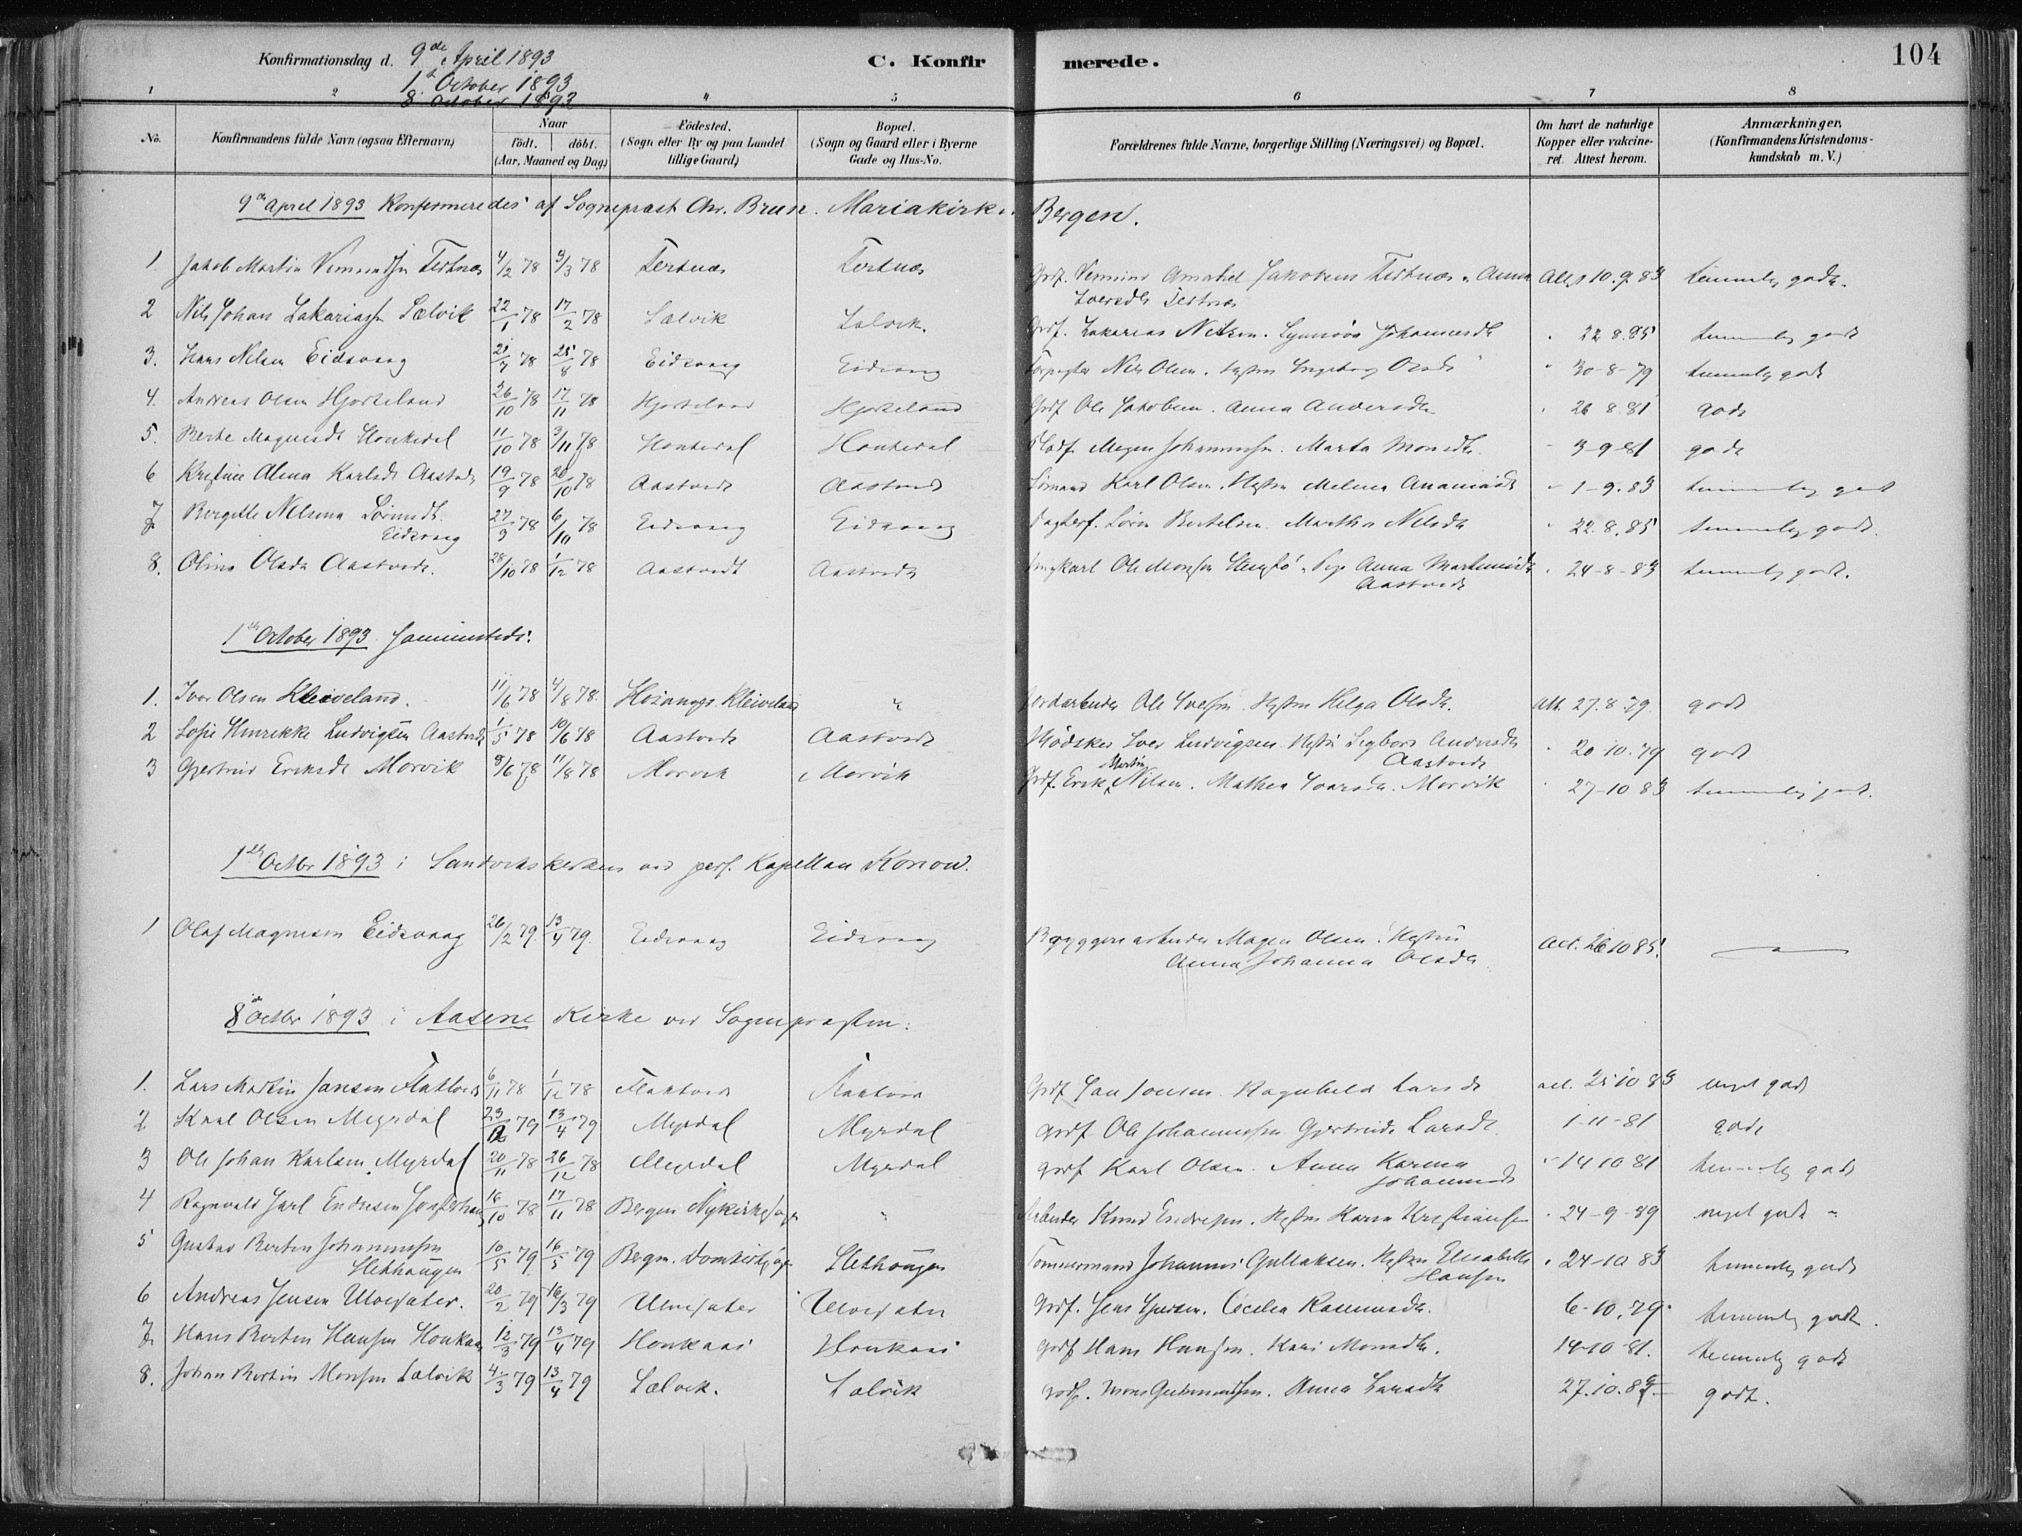 104
Konfirmationsdag d. 9de April 1893
1ste October 1893
8. October 1893
C. Konfirmerede.
1 2 4 5 6 7 8
No.
Konfirmandens fulde Navn (ogsaa Efternavn)
Naar
født. døbt.
(Aar, Maaned og Dag)
Fødested.
(Sogn eller By og paa Landet
tillige Gaard)
Bopæl.
(Sogn og Gaard eller i Byerne
Gade og Hus-No.
Forældrenes fulde Navne, borgerlige Stilling (Næringsvei) og Bopæl.
Om havt de naturlige
Kopper eller vakcine-
ret. Attest herom.
Anmærkninger.
(Konfirmandens Kristendoms-
kundskab m. V.)
9de April 1893 Konfirmeredes af Sognepræst Chr. Brun. Mariakirken Bergen.
1. Jakob Martin Tertnæs 4/2 78 3/3 78 Tertnæs Tertnæs Grdf. Jakobsen Tertnæs Anna Tertnæs 10.9.83 temmelig godt.
2 Nils Johan Zakariassen Salvik 22/1 78 17/2 78 Salvik Salvik Grdf. Zakarias Nilsen. Synnøve Johannesdtr " 22.8.85 temmelig godt
3. Hans Nilsen Eidsvaag 21/7 78 25/8 78 Eidsvaag Eidsvaag Nils Olsen. Hustru Ingeborg Olsdtr " 30-8-79 temmelig godt
4. Andreas Olsen Hjorteland 26/10 78 17/11 78 Hjorteland Hjorteland Grdf Ole Jakobsen. Anna Andersdtr " 26 8.81 godt
5. Berte Magnesdtr Houkedal 11/10 78 3/11 78 Houkedal Houkedal Magne Johannessen. Marta Monsdtr " 3-9-81 godt
6 Kristine Alma Karlsdtr Aastvedt 19/9 78 20/10 78 Aastvedt Aastvedt Karl Olsen. Hustru Melina " 1-9.83 temmelig godt
7 Bergitte Nilsina Sørensdtr Eidsvaag 27/9 78 6/10 78 Eidsvaag Eidsvaag Søren Bertelsen. Martha Nilsdtr " 22.8.85 temmelig godt.
8. Oline Olsdtr Aastvedt. 28/10 78 1/12 78 Aastvedt Aastvedt Ungkarl Ole Monsen Pige Anna Martinusdtr Aastvedt " 24-8-83 temmelig godt.
1ste October 1893 sammesteds:
1. Iver Olsen Kleiveland. 11/6 78 4/8 78. Kleiveland " Jordarbeider Ole Iversen. Hustru Helga Olsdtr. Att. 27.8 79. godt
2 Sofie Hinrikke Ludvigsen Aastvedt 1/5 78 10/6 78 Aastvedt Aastvedt Iver Ludvigsen. Hustru Segborg Andersdtr Aastvedt " 20-10.79 godt
3 Gjertrud Eriksdtr Morvik 8/6 78 11/8 78 Morvik Morvik Grdf. Erik Martin Nilsen. Mathea Ivarsdtr. Morvik " 27-10 83 temmelig godt.
1ste Octbr 1893 i Sandvikskirken ved pers. Kapellan Konow.
1 Olaf Magnesen Eidsvaag 26/2 79 13/4 79. Eidsvaag Eidsvaag Magne Olsen. Hustru Anna Johanna Olsdtr Act. 26 10 85. "
8de Octbr 1893 i Aasene Kirke ved Sognepræsten:
1. Lars Martin Jansen Flaktveit 6/11 78 1/12 78 Flaktvedt Flaktveit Grdf Jan Jonsen. Ragnhild Larsdtr act. 25 10 83 meget godt
2 Knut Olsen Myrdal 23/12 79 13/4 79 Myrdal Myrdal Grdf Ole Johannessen Gjertrude Larsdtr. 1-11-81 godt
3 Ole Johan Karlsen Myrdal 20/11 78 26/12 78 Myrdal Myrdal Grdf Karl Olsen. Anna Karina Johannesdtr " 14 10 81 temmelig godt
4 Ragnvald Jarl Endresen 16/10 78 17/11 78 Bergen Nykirkesogn " Arbeider Knud Endresen. Hustru Karen Kristiansen " 24-9-89 meget godt
5 Gustav Bertin Johannessen Slethaugen 10/5 79 16/5 79 Bergen. Domkirkesogn Slethaugen Tømmermand Johannes Gullaksen. Hustru Elisabeth Hansen " 24-10 83 temmelig godt
6 Andreas Jensen Ulvesæter. 20/2 79 16/3 79 Ulvesæter Ulvesæter Grdf. Jens Cecilia Rasmusdtr. 6-10.79. temmelig godt.
7 Hans Bertin Hansen Houkaas 12/3 79 13/4 79 Houkaas Houkaas Grdf Hans Hansen. Kari Monsdtr. 14-10 81. temmelig godt
8. Johan Bertin Monsen Salvik 4/3 79 13/4 79 Salvik. Salvik Grdf. Mons Gudmundsen. Anna Larsdtr 27.10.85 godt.